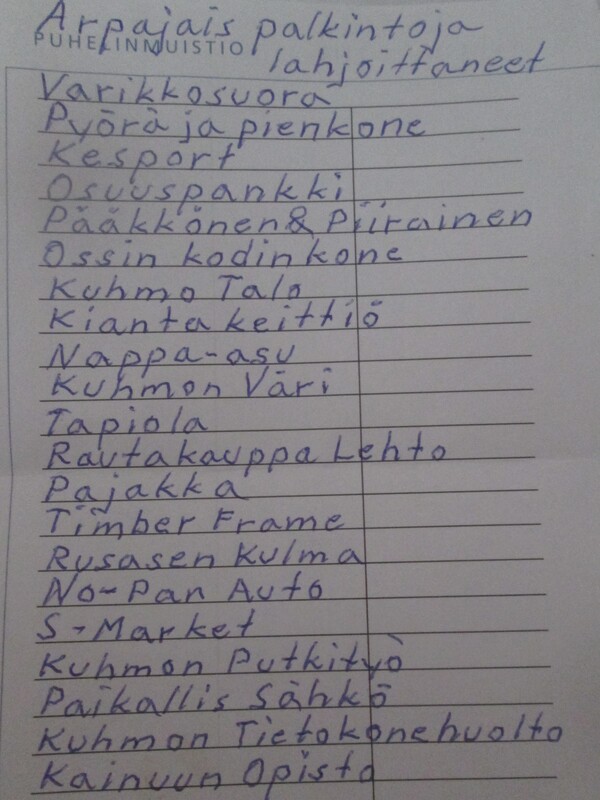 Arpajais palkintoja
PUHELINMUISTIO
lahjoittaneet
Varikkosuora
Pyörä ja pienkone
Kesport
Osuuspankki
Pääkkönen & Piirainen
Ossin kodinkone
Kuhmo Talo
Kianta keittiö
Nappa-asu
Kuhmon Väri
Tapiola
Rautakauppa Lehto
Pajakka
Timber Frame
Rusasen Kulma
No-Pan Auto
S-Market
Kuhmon Putkityö
Paikallis Sähkö
Kuhmon Tietokonehuolto
Kainuun Opisto